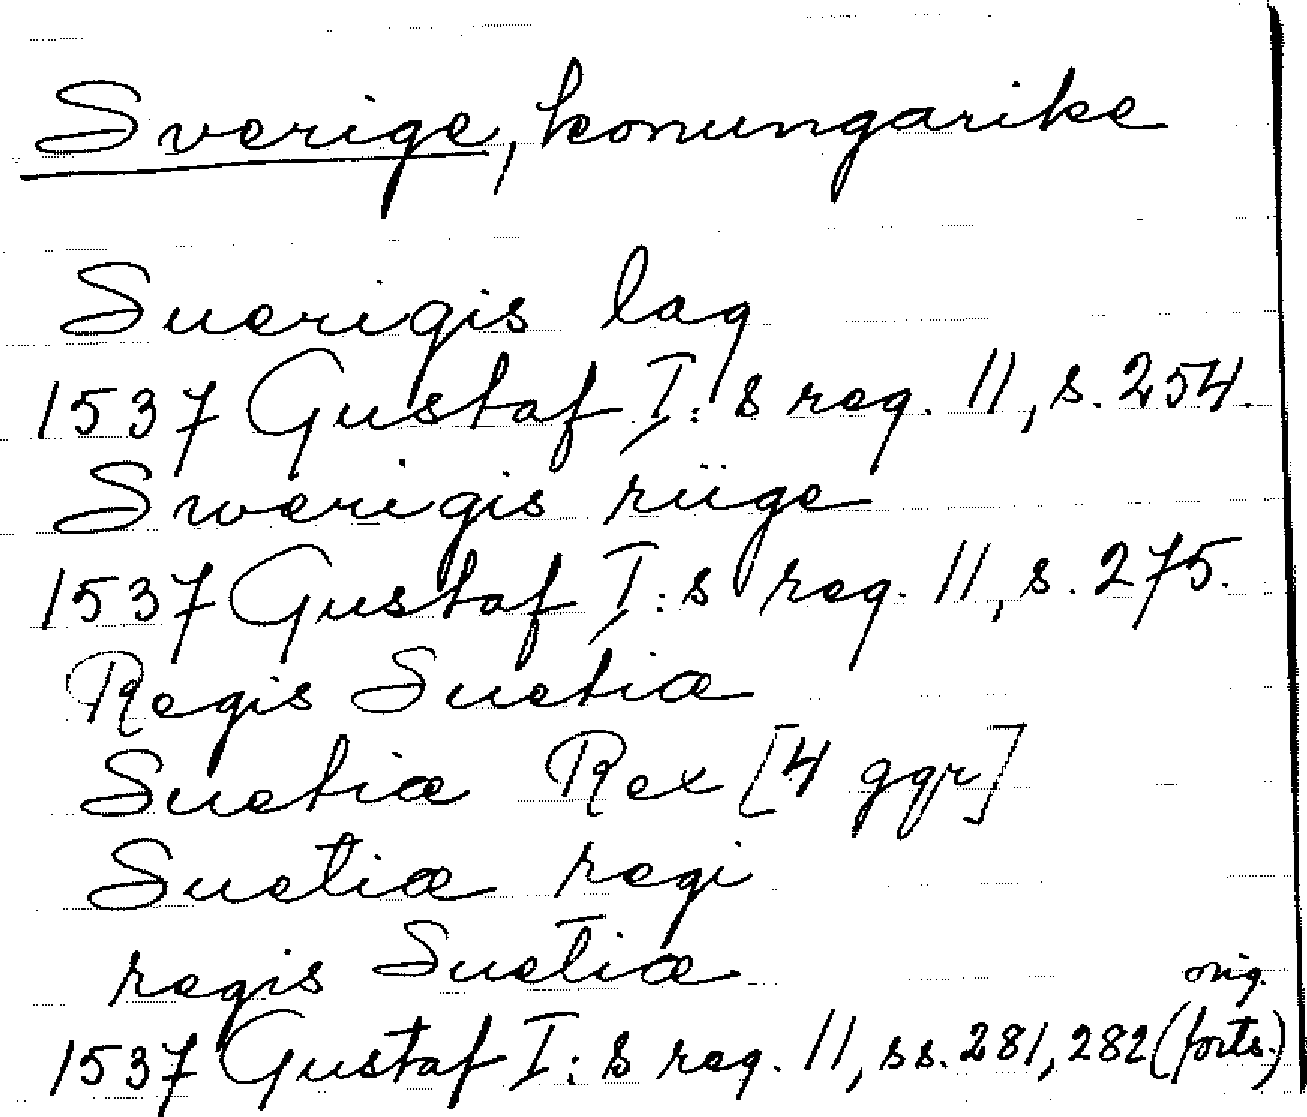 Sverige, konungarike
Suerigis lag
1537 Gustaf I:s reg. 11, s. 254.
Swerigis riige
1537 Gustaf I:s reg. 11, s. 275.
Regis Suetiæ
Suetiæ Rex [4 ggr]
Suetiæ regi
regis Suetiæ
orig.
1537 Gustaf I:s reg. 11, ss. 281, 282 (forts.)